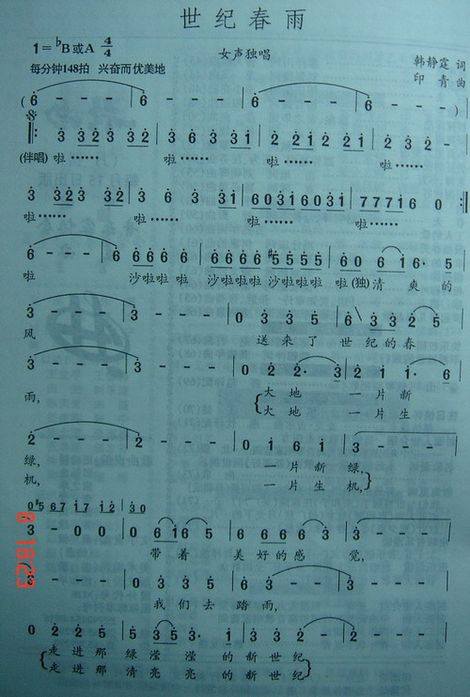 世纪春雨
1=♭B或A 4/4
女声独唱
韩静霆 词
每分钟148拍 兴奋而优美地
印青 曲
( 6 - - - | 6 - - - | 6 - - - | 6 - - - )
3 323 323 | 3 6 3 31 | 2 21 2 21 | 2 32 - -
(伴唱) 啦…… 啦…… 啦…… 啦……
3 323 323 | 3 6 3 3 | 60316031 | 77716 0
啦…… 啦…… 啦…… 啦……
6 - - - | 6 6666 | 6666 #5555 | 60 6 16· 5
啦 沙啦啦啦 沙啦啦啦 沙啦啦啦 啦(独)清爽的
3 - - - | 3 - - - | 0 3 3 5 | 6 3325
风 送来了 世纪的春
3 - - - | 3 - - - | 0 2 2· 3 | 2 1 1· 6
雨, 大地 一片新
大地 一片生
2 - - - | 2 - - - | 0 1 6 1 | 3 - - -
绿, 一片新绿,
机, 一片生机,
0#5 67 17 12 | 30
3 - 0 0 | 0 6165 | 6 6 6 3 | 3 - - -
带着 美好的感觉,
3 - - - | 0 3 3 5 | 6 3 - - | 3 - - -
我们去踏雨,
8 18:23
0 2 2 5 | 5 35 3· 1 | 3 3 2 2 | 2 - - -
走进那 绿滢滢的新世纪
走进那 清亮亮的新世纪